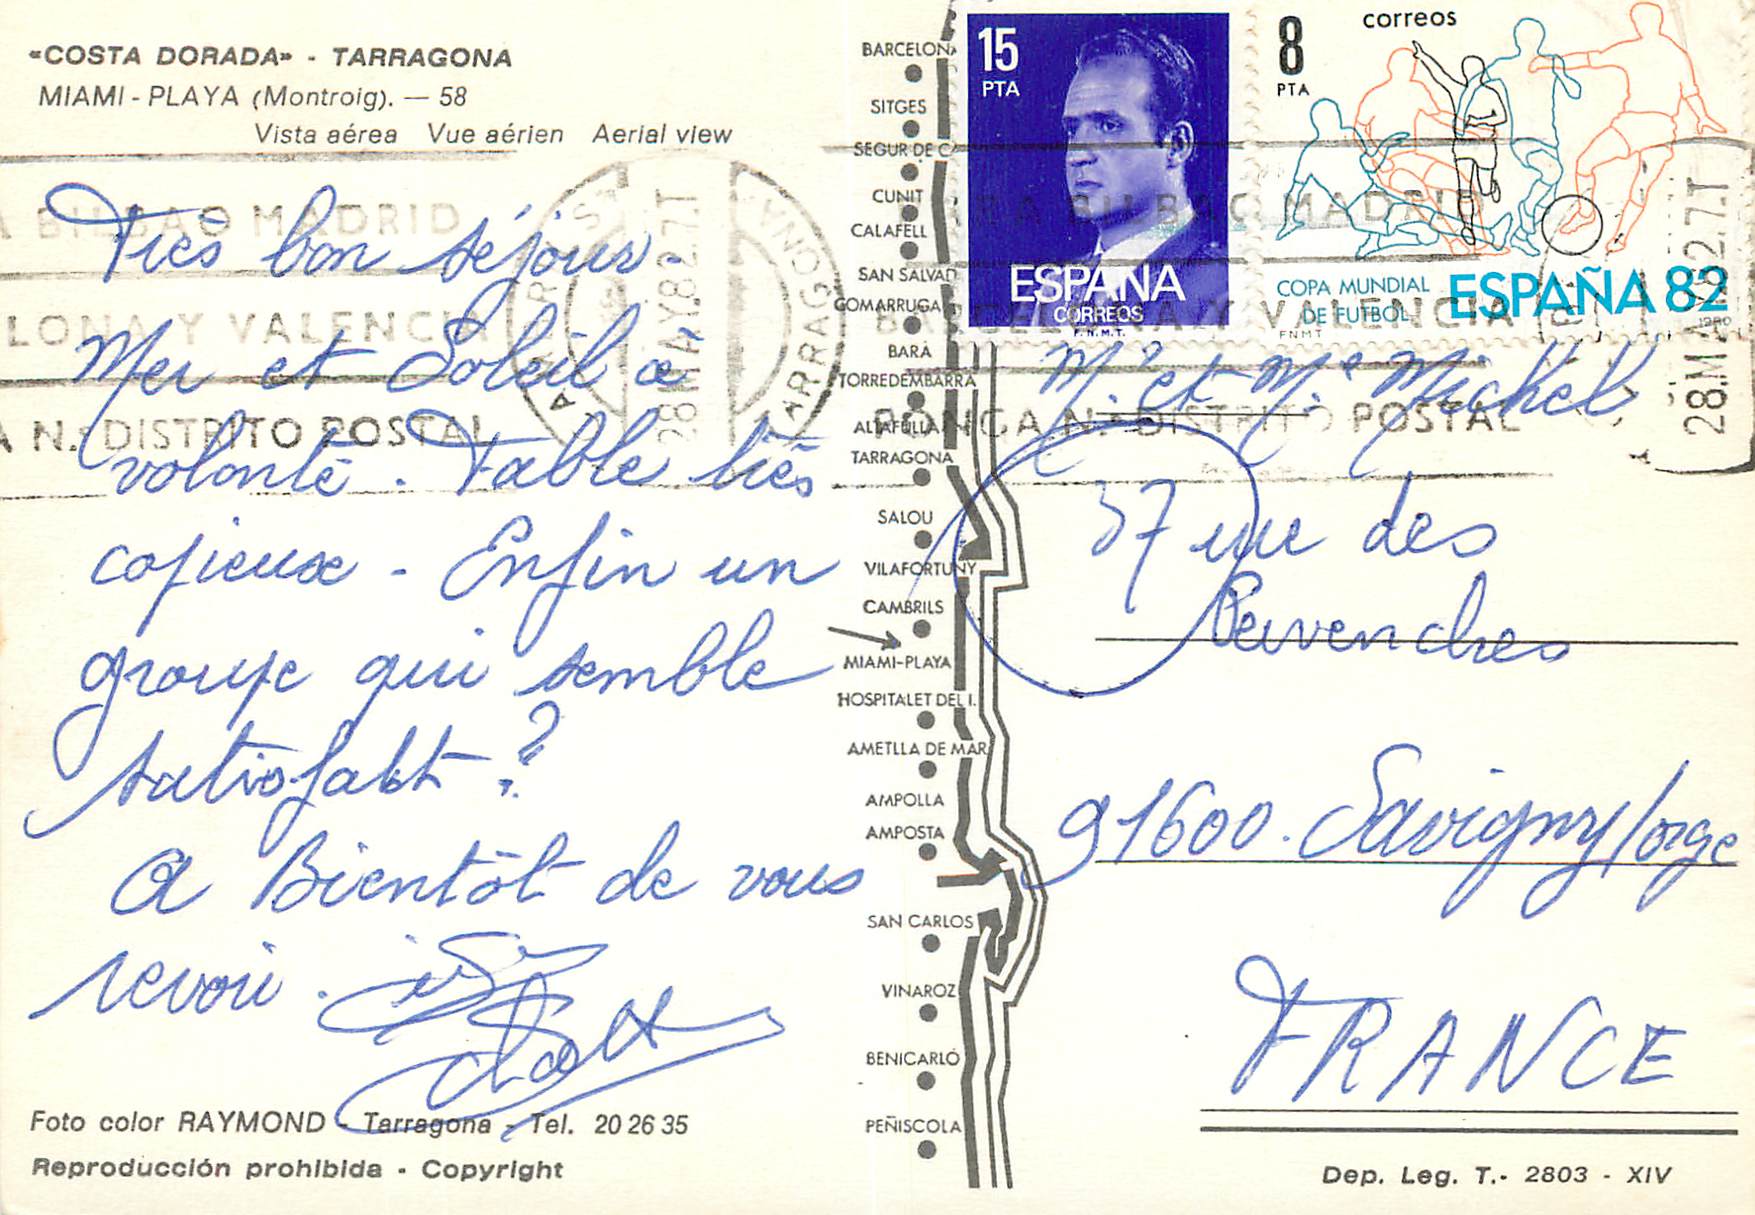 «COSTA DORADA» - TARRAGONA
MIAMI - PLAYA (Montroig). — 58
Vista aérea Vue aérien Aerial view
Très bon séjour.
Mer et Soleil à
volonté. Table très
copieuse - Enfin un
groupe qui semble
satisfait ?
A Bientôt de vous
revoir.
Foto color RAYMOND - Tarragona - Tel. 20 26 35
Reproducción prohibida - Copyright
BARCELONA
SITGES
SEGUR DE C
CUNIT
CALAFELL
SAN SALVAD
COMARRUGA
BARÁ
TORREDEMBARRA
ALTAFULLA
TARRAGONA
SALOU
VILAFORTUNY
CAMBRILS
MIAMI-PLAYA
HOSPITALET DEL I.
AMETLLA DE MAR
AMPOLLA
AMPOSTA
SAN CARLOS
VINAROZ
BENICARLÓ
PEÑISCOLA
15
PTA
ESPAÑA
CORREOS
F.N.M.T.
8
PTA
correos
COPA MUNDIAL
DE FUTBOL
ESPAÑA 82
FNMT
1980
A BILBAO MADRID
LONA Y VALENCIA
A N.º DISTRITO POSTAL
TARRAGONA
28 MAY.82.7.T
BILBAO MADRID
BARCELONA Y VALENCIA
PONGA N.º DISTRITO POSTAL
28 MAY 82.7.T
M. et Me Michel
37 rue des
Pervenches
91600. Savigny/orge
FRANCE
Dep. Leg. T.- 2803 - XIV